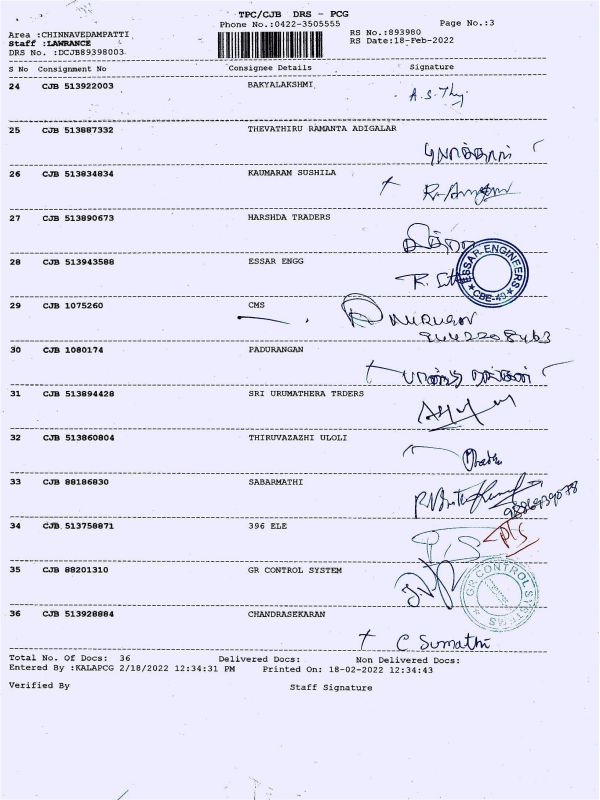 TPC/CJB DRS - PCG
Phone No.:0422-3505555 Page No.:3
Area :CHINNAVEDAMPATTI RS No.:893980
Staff :LAWRANCE RS Date:18-Feb-2022
DRS No. :DCJB89398003
S No Consignment No Consignee Details Signature
24 CJB 513922003 BAKYALAKSHMI
25 CJB 513887332 THEVATHIRU RAMANTA ADIGALAR
26 CJB 513834834 KAUMARAM SUSHILA
27 CJB 513890673 HARSHDA TRADERS
28 CJB 513943588 ESSAR ENGG
ESSAR ENGINEERS
29 CJB 1075260 CMS
MURUGAN
30 CJB 1080174 PADURANGAN
31 CJB 513894428 SRI URUMATHERA TRDERS
32 CJB 513860804 THIRUVAZAZHI ULOLI
33 CJB 88186830 SABARMATHI
34 CJB 513758871 396 ELE
35 CJB 88201310 GR CONTROL SYSTEM
GR CONTROL SYSTEMS
36 CJB 513928884 CHANDRASEKARAN
C Sumathi
Total No. Of Docs: 36 Delivered Docs: Non Delivered Docs:
Entered By :KALAPCG 2/18/2022 12:34:31 PM Printed On: 18-02-2022 12:34:43
Verified By Staff Signature